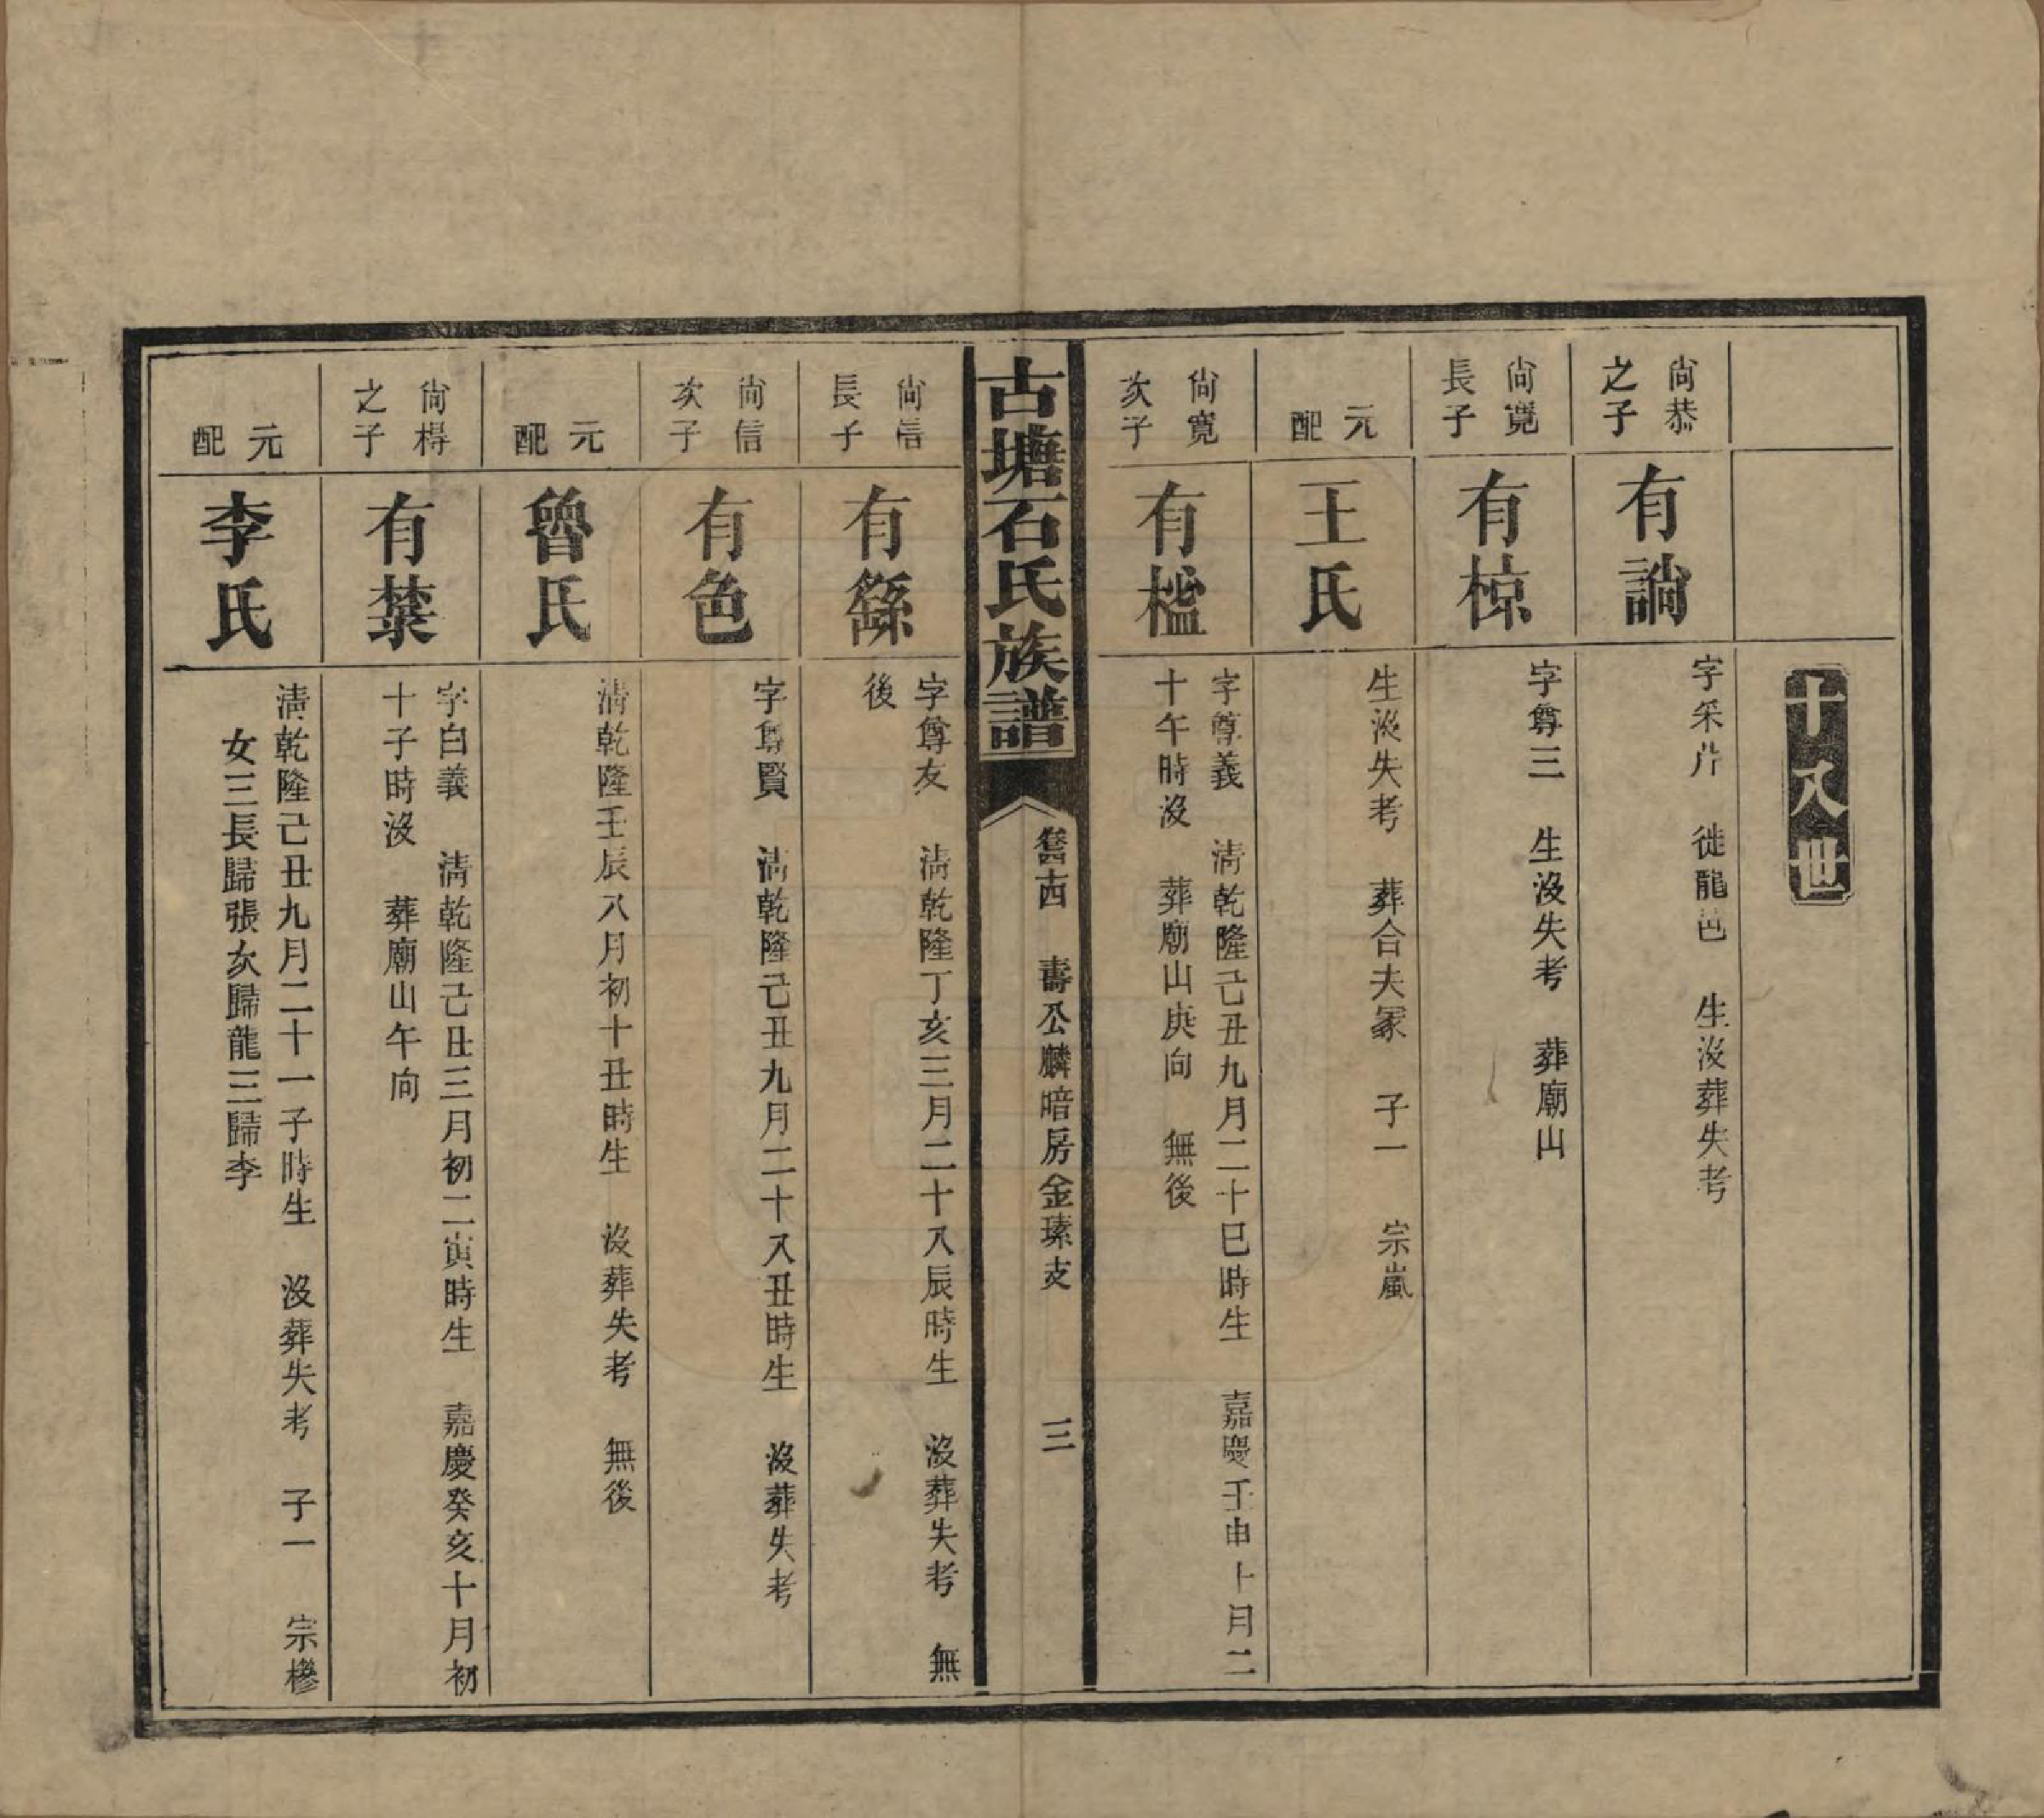 十八世
尙恭
之子
有詾
字采 徙龍邑 生沒葬失考
尙寬
長子
有椋
字尊三 生沒失考 葬廟山
元配
王氏
生沒失考 葬合夫冢 子一 宗嵐
尙寬
次子
有榏
字尊義 淸乾隆己丑九月二十巳時生 嘉慶壬申十月二
十午時沒 葬廟山庚向 無後
古塘石氏族譜
卷四十四 壽公麟暗房金瑧支 三
尙信
長子
有繇
字尊友 淸乾隆丁亥三月二十八辰時生 沒葬失考 無
後
尙信
次子
有色
字尊賢 淸乾隆己丑九月二十八丑時生 沒葬失考
元配
魯氏
淸乾隆壬辰八月初十丑時生 沒葬失考 無後
尙樗
之子
有棻
字白義 淸乾隆己丑三月初二寅時生 嘉慶癸亥十月初
十子時沒 葬廟山午向
元配
李氏
淸乾隆己丑九月二十一子時生 沒葬失考 子一 宗槮
女三長歸張次歸龍三歸李